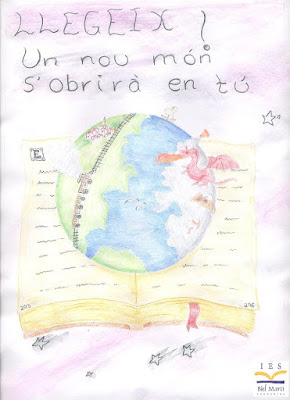 LLEGEIX!
Un nou món
S'obrirà en tú
E
205
206
IES
Biel Martí